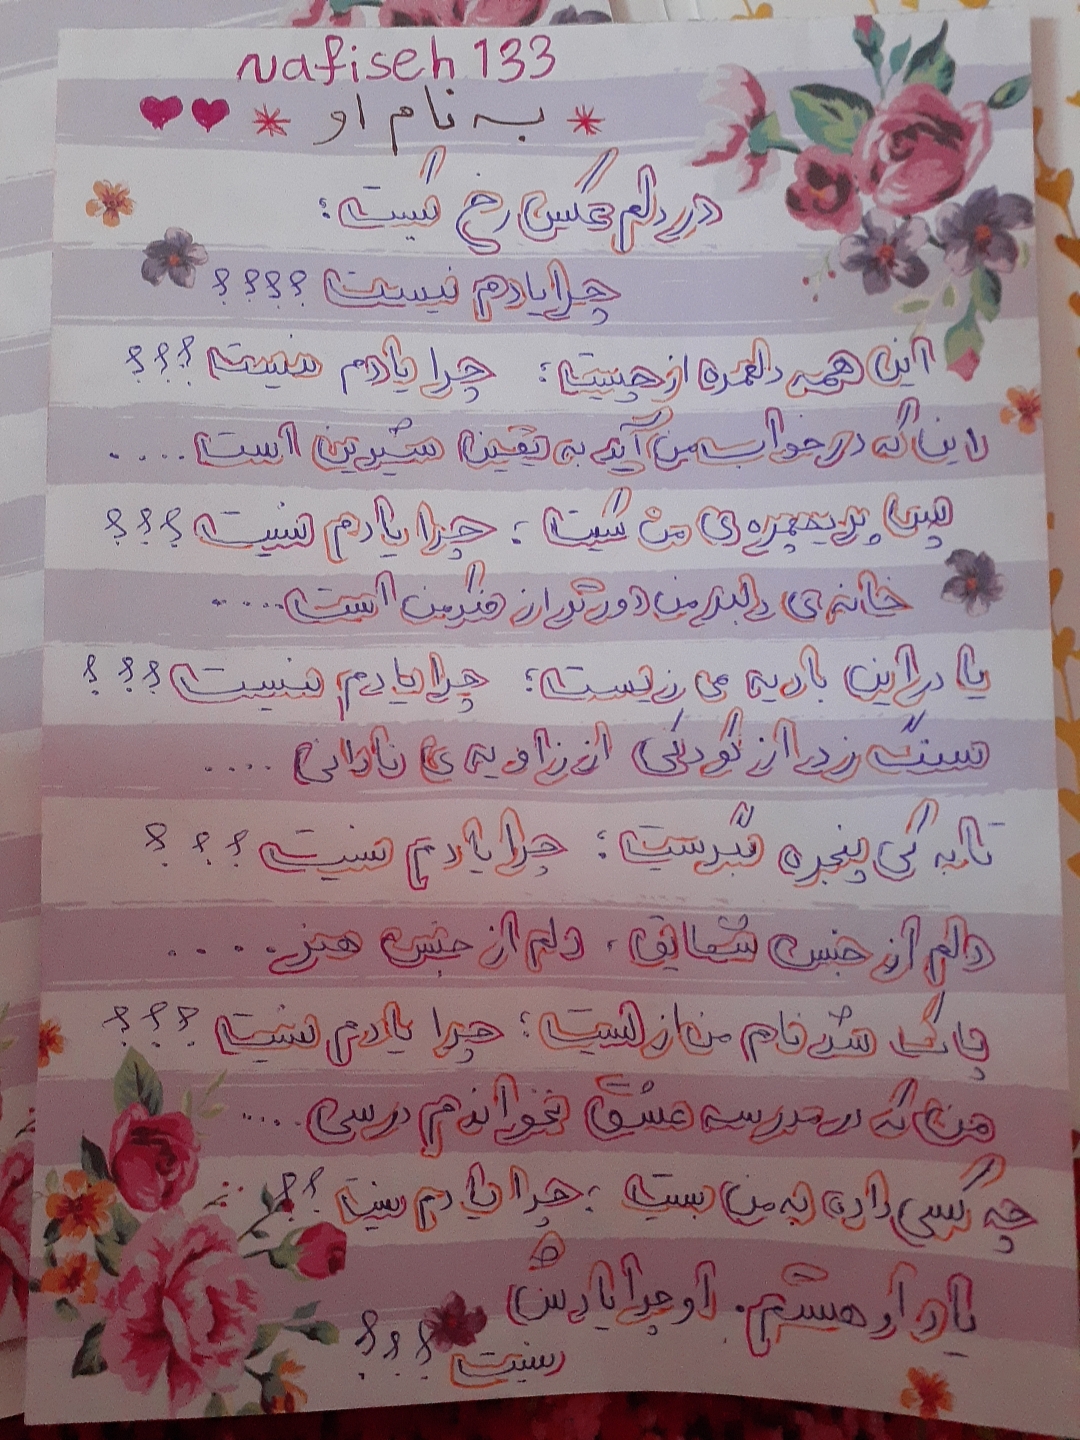 nafiseh 133
* به نام او *
در دلم عکس رخ کیست؛
چرا یادم نیست ؟؟؟؟
این همه دلهره از چیست؛ چرا یادم نیست ؟؟؟
اینکه در خواب من آید به یقین شیرین است ....
پس پریچهره ی من کیست؛ چرا یادم نیست ؟؟؟
خانه ی دلبر من دورتر از فکر من است ....
یا در این بادیه می زیست؛ چرا یادم نیست ؟؟؟
سنگ زدم از کودکی از زاویه ی نادانی ....
تا به کی پنجره نگریست؛ چرا یادم نیست ؟؟؟
دلم از جنس شقایق، دلم از جنس هنر ....
پاک شد نام من از لیست؛ چرا یادم نیست ؟؟؟
من که در مدرسه عشق نخواندم درسی ....
چه کسی داده به من بیست؛ چرا یادم نیست ؟؟
یاد او هستم. او چرا یادش
نیست ؟؟؟